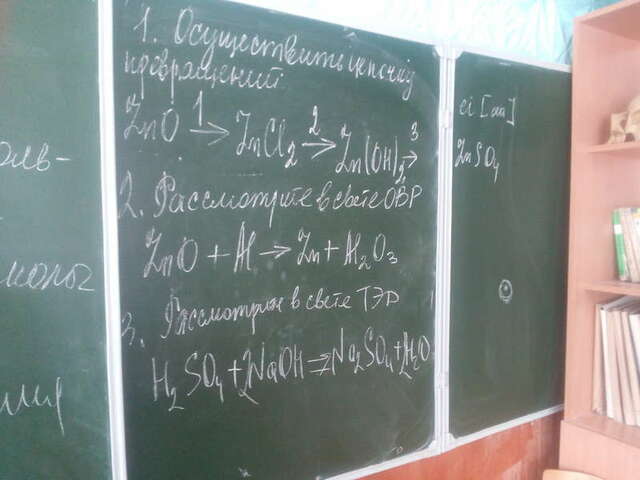 1. Осуществить цепочку
превращений
ZnO 1→ ZnCl2 2→ Zn(OH)2 3→
2. Рассмотрите в свете ОВР
ZnO + Al → Zn + Al2O3
3. Рассмотрите в свете ТЭД
H2SO4 + 2NaOH = Na2SO4 + 2H2O
ZnSO4